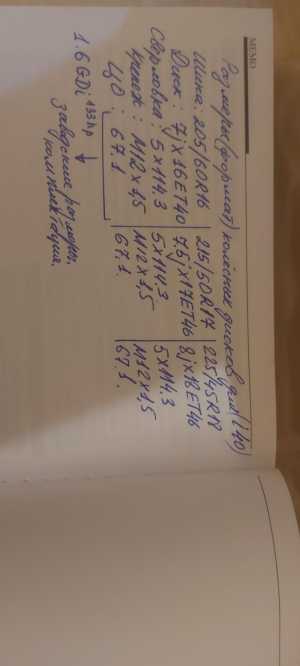 MEMO
Размеры (формат) колёсных дисков для (i40)
Шина: 205/60R16 | 215/50R17 | 225/45R18
Диск: 7jx16ET40 | 7.5jx17ET46 | 8jx18ET46
Сверловка 5x114.3 | 5x114.3 | 5x114.3
Крепёж: M12x1,5 | M12x1,5 | M12x1,5
ЦО: 67.1 | 67.1. | 67.1.
1.6 GDi 133hp
заводские размеры,
комплектация.